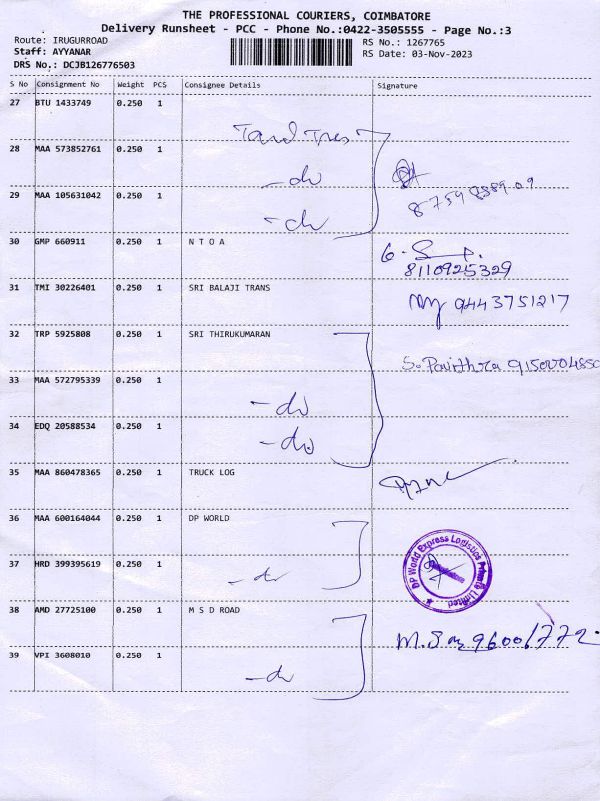 THE PROFESSIONAL COURIERS, COIMBATORE
Delivery Runsheet - PCC - Phone No.:0422-3505555 - Page No.:3
Route: IRUGURROAD
Staff: AYYANAR
DRS No.: DCJB126776503
RS No.: 1267765
RS Date: 03-Nov-2023
S No Consignment No Weight PCS Consignee Details Signature
27 BTU 1433749 0.250 1
28 MAA 573852761 0.250 1 -do
29 MAA 105631042 0.250 1 -do
30 GMP 660911 0.250 1 N T O A
8110925329
31 TMI 30226401 0.250 1 SRI BALAJI TRANS 9443751217
32 TRP 5925808 0.250 1 SRI THIRUKUMARAN
S. Pavithra
33 MAA 572795339 0.250 1 -do
34 EDQ 20588534 0.250 1 -do
35 MAA 860478365 0.250 1 TRUCK LOG
36 MAA 600164044 0.250 1 DP WORLD
DP World Express Logistics Private Limited
37 HRD 399395619 0.250 1 -do
38 AMD 27725100 0.250 1 M S D ROAD
39 VPI 3608010 0.250 1 -do